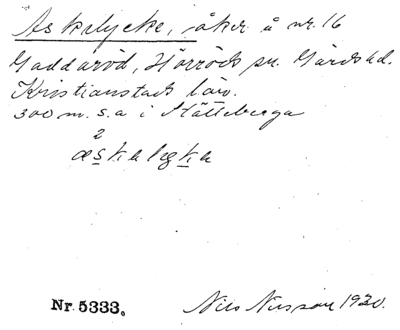 Askalycke, åker å nr. 16
Gaddaröd, Hörröds sn. Gärds hd.
Kristianstads län.
300 m. s. a i Mätteberga
2
æskalyka
Nr. 5333.
Nils Nilsson 1930.